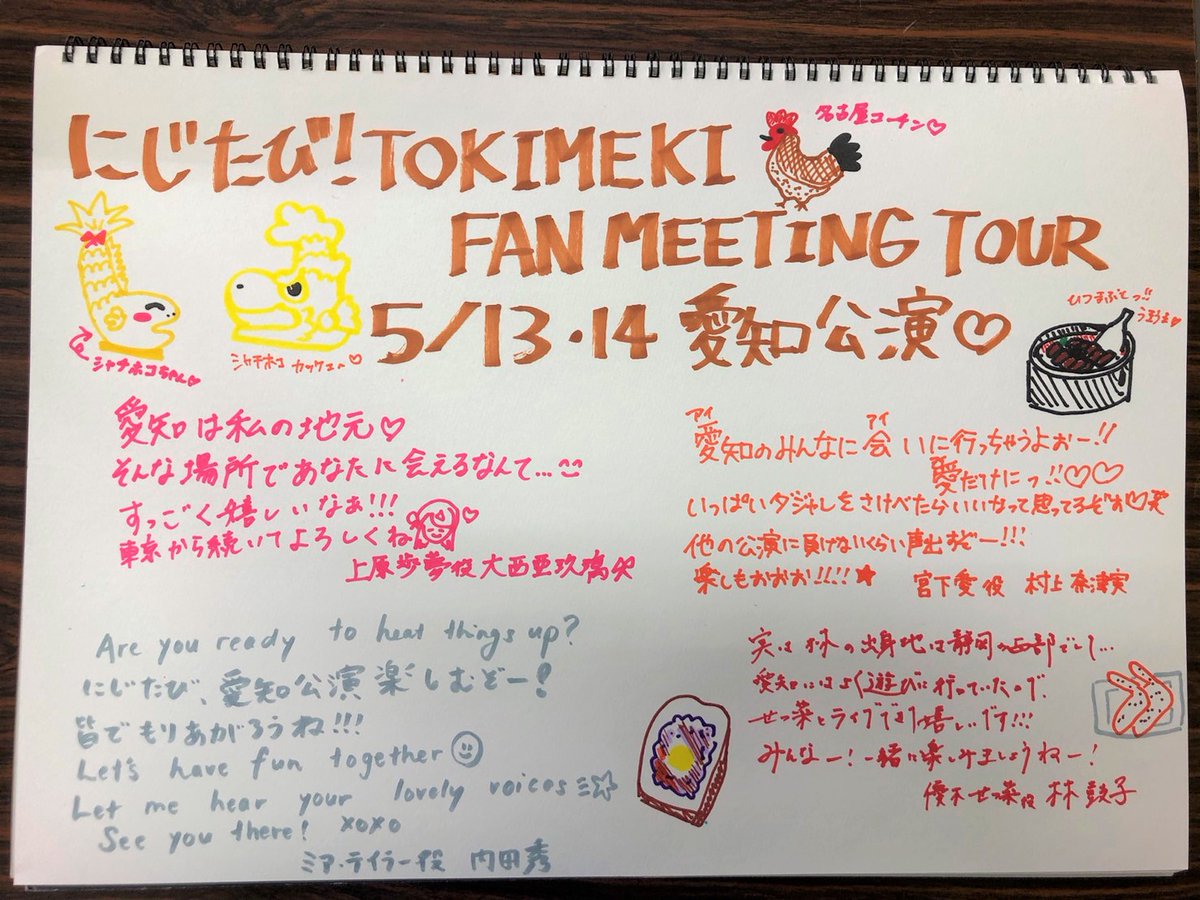 にじたび!TOKIMEKI
名古屋コーチン♡
FAN MEETING TOUR
5/13・14 愛知公演♡
シャチホコちゃん♡
シャチホコ カッケェ〜♡
ひつまぶしっ!!
愛知は私の地元♡
そんな場所であなたに会えるなんて…
すっごく嬉しいなぁ!!!
東京から続いてよろしくね
上原歩夢役 大西亜玖璃
アイ アイ
愛知のみんなに会いに行っちゃうよぉー!!
愛だけにっ!!♡♡
いっぱいダジャレをさけべたらいいなって思ってるぞぉ♡
他の公演に負けないくらい声出すぞー!!!
楽しもおおお!!!!★
宮下愛役 村上奈津実
Are you ready to heat things up?
にじたび、愛知公演楽しむぞー!
皆でもりあがろうね!!!
Let's have fun together
Let me hear your lovely voices
See you there! xoxo
ミア・テイラー役 内田秀
実は林の出身地は静岡の西部でして…
愛知にはよく遊びに行っていたので、
せつ菜とライブできて嬉しいです!!!
みんなー!一緒に楽しみましょうねー!
優木せつ菜役 林鼓子